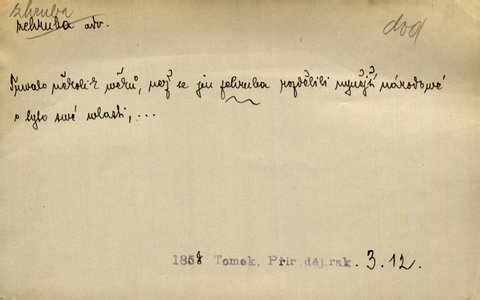 zhruba
zehruba adv.
dod
Trvalo několik věků, než se jiu zehruba rozdělili nynější národové
o tyto své vlasti, ...
1858 Tomek. Přír.děj.rak. 3.12.